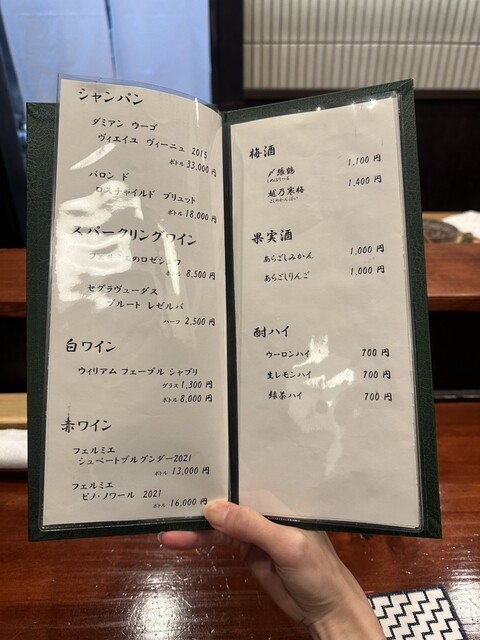 シャンパン
ダミアン ウーゴ
ヴィエイユ ヴィーニュ 2015
ボトル 33,000 円
バロン ド
ロスチャイルド ブリュット
ボトル 18,000 円
スパークリングワイン
のロゼ
ボトル 8,500 円
セグラヴューダス
ブルート レゼルバ
ハーフ 2,500 円
白ワイン
ウィリアム フェーブル シャブリ
グラス 1,300 円
ボトル 8,000 円
赤ワイン
フェルミエ
シュペートブルグンダー2021
ボトル 13,000 円
フェルミエ
ピノ・ノワール 2021
ボトル 16,000 円
梅酒
〆張鶴
しめはりつる
1,100 円
越乃寒梅
こしのかんばい
1,400 円
果実酒
あらごしみかん 1,000 円
あらごしりんご 1,000 円
酎ハイ
ウーロンハイ 700 円
生レモンハイ 700 円
緑茶ハイ 700 円